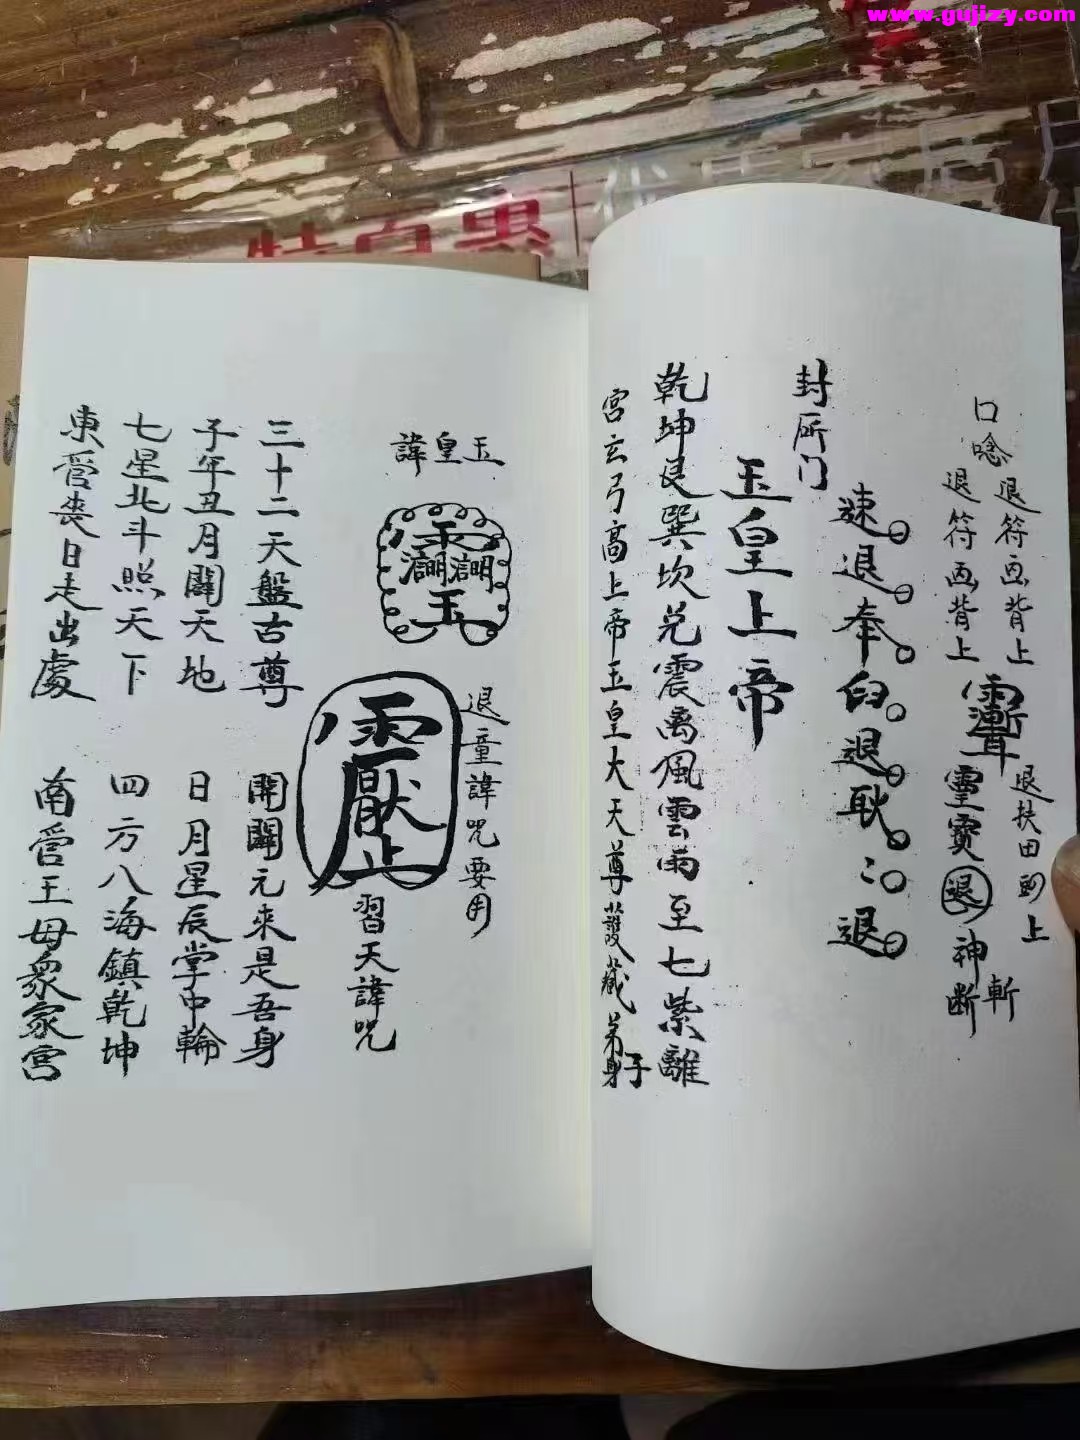 www.gujizy.com
特百惠
口唸
退符画背上
退符画背上
靈寶退神断
斬
退扶田到上
速退奉
退耿
退
封
门
玉皇上帝
乾坤艮巽坎兑震离風雲雨至七紫離
宮玄弓高上帝玉皇大天尊護藏弟子身
玉皇諱
玉
退童諱咒要用
習天諱咒
三十二天盤古尊 開闢元來是吾身
子年丑月闢天地 日月星辰掌中輪
七星北斗照天下 四方八海鎮乾坤
東營喪日走出處 南營王母眾家宮